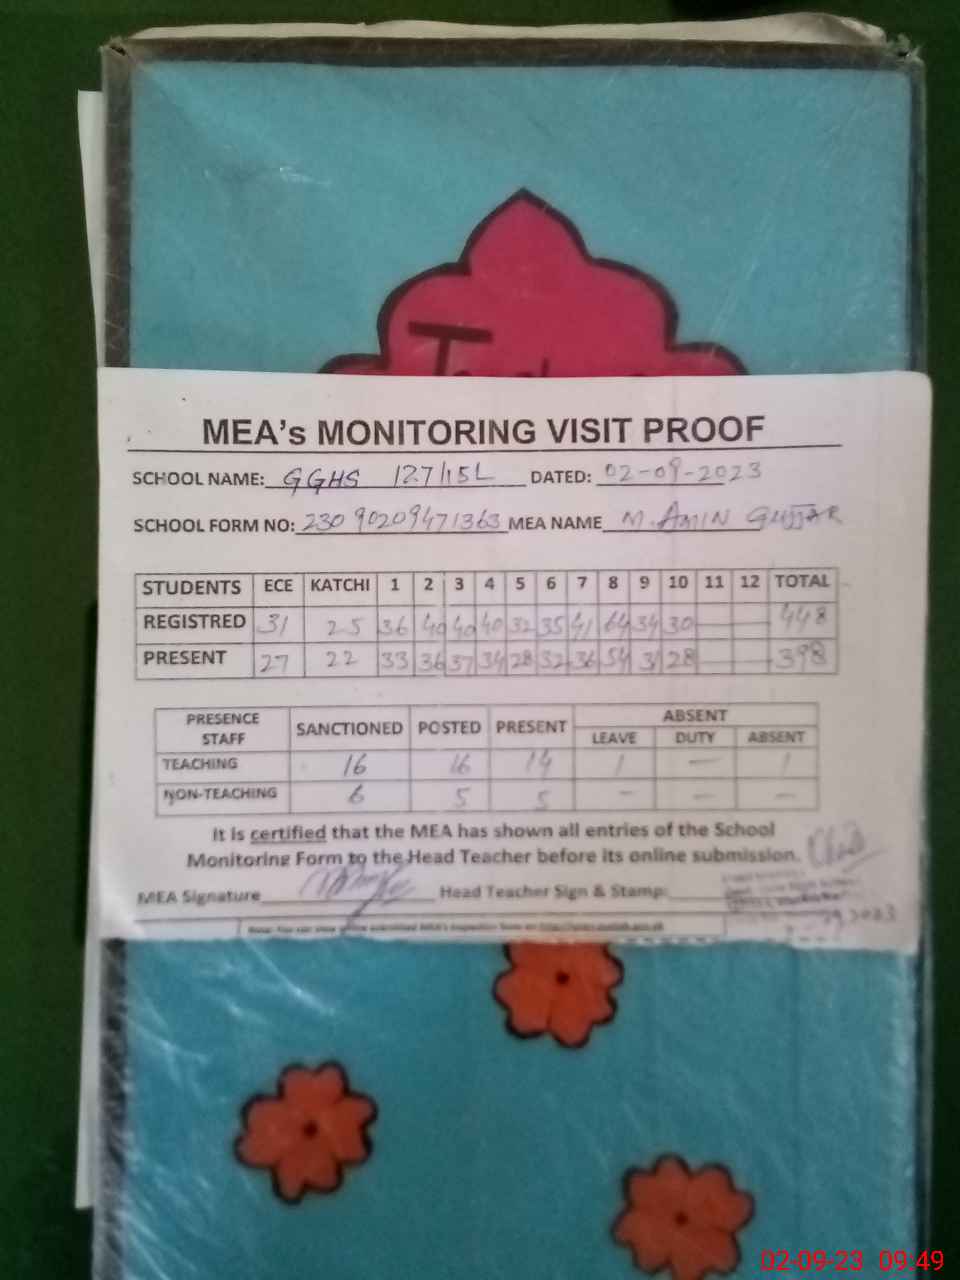 MEA's MONITORING VISIT PROOF
SCHOOL NAME: GGHS 127/15L DATED: 02-09-2023
SCHOOL FORM NO: 23090209471363 MEA NAME M. AMIN GUJJAR
STUDENTS ECE KATCHI 1 2 3 4 5 6 7 8 9 10 11 12 TOTAL
REGISTRED 31 25 36 40 40 40 32 35 41 64 34 30 — — 448
PRESENT 27 22 33 36 37 34 28 32 36 54 31 28 — — 398
PRESENCE STAFF SANCTIONED POSTED PRESENT ABSENT
LEAVE DUTY ABSENT
TEACHING 16 16 14 1 — 1
NON-TEACHING 6 5 5 — — —
It is certified that the MEA has shown all entries of the School
Monitoring Form to the Head Teacher before its online submission.
MEA Signature Head Teacher Sign & Stamp:
02-09-23 09:49